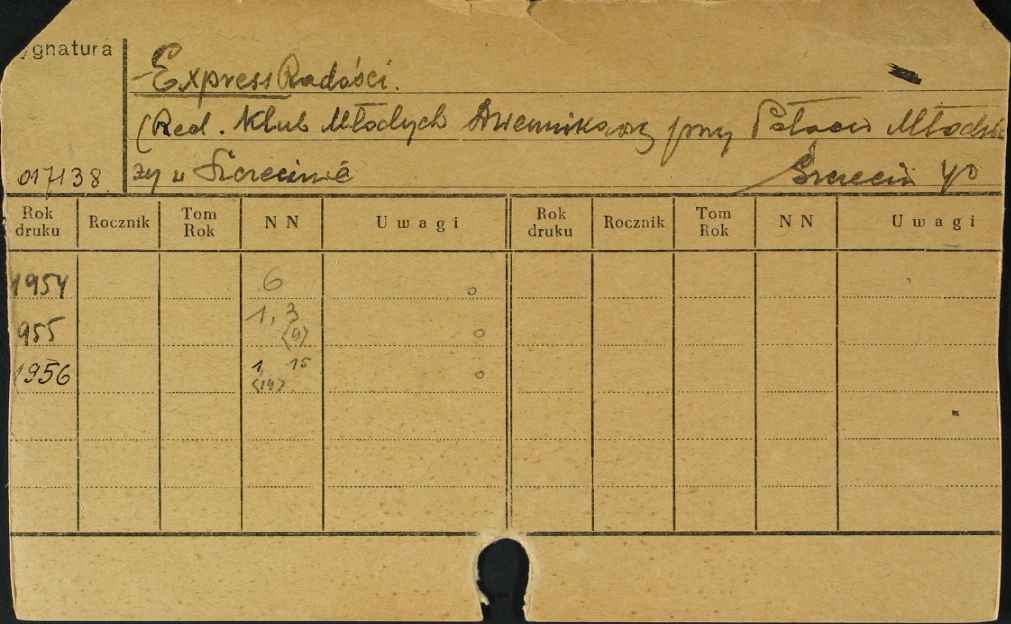 ygnatura
Express Radości.
(Red. Klub Młodych Dziennikarzy przy Pałacu Młodzie
ży w Szczecinie Szczecin 40
017138
Rok druku Rocznik Tom Rok NN Uwagi Rok druku Rocznik Tom Rok NN Uwagi
1954 6 o
955 1, 3 o
(9)
1956 1, 15 o
(14)